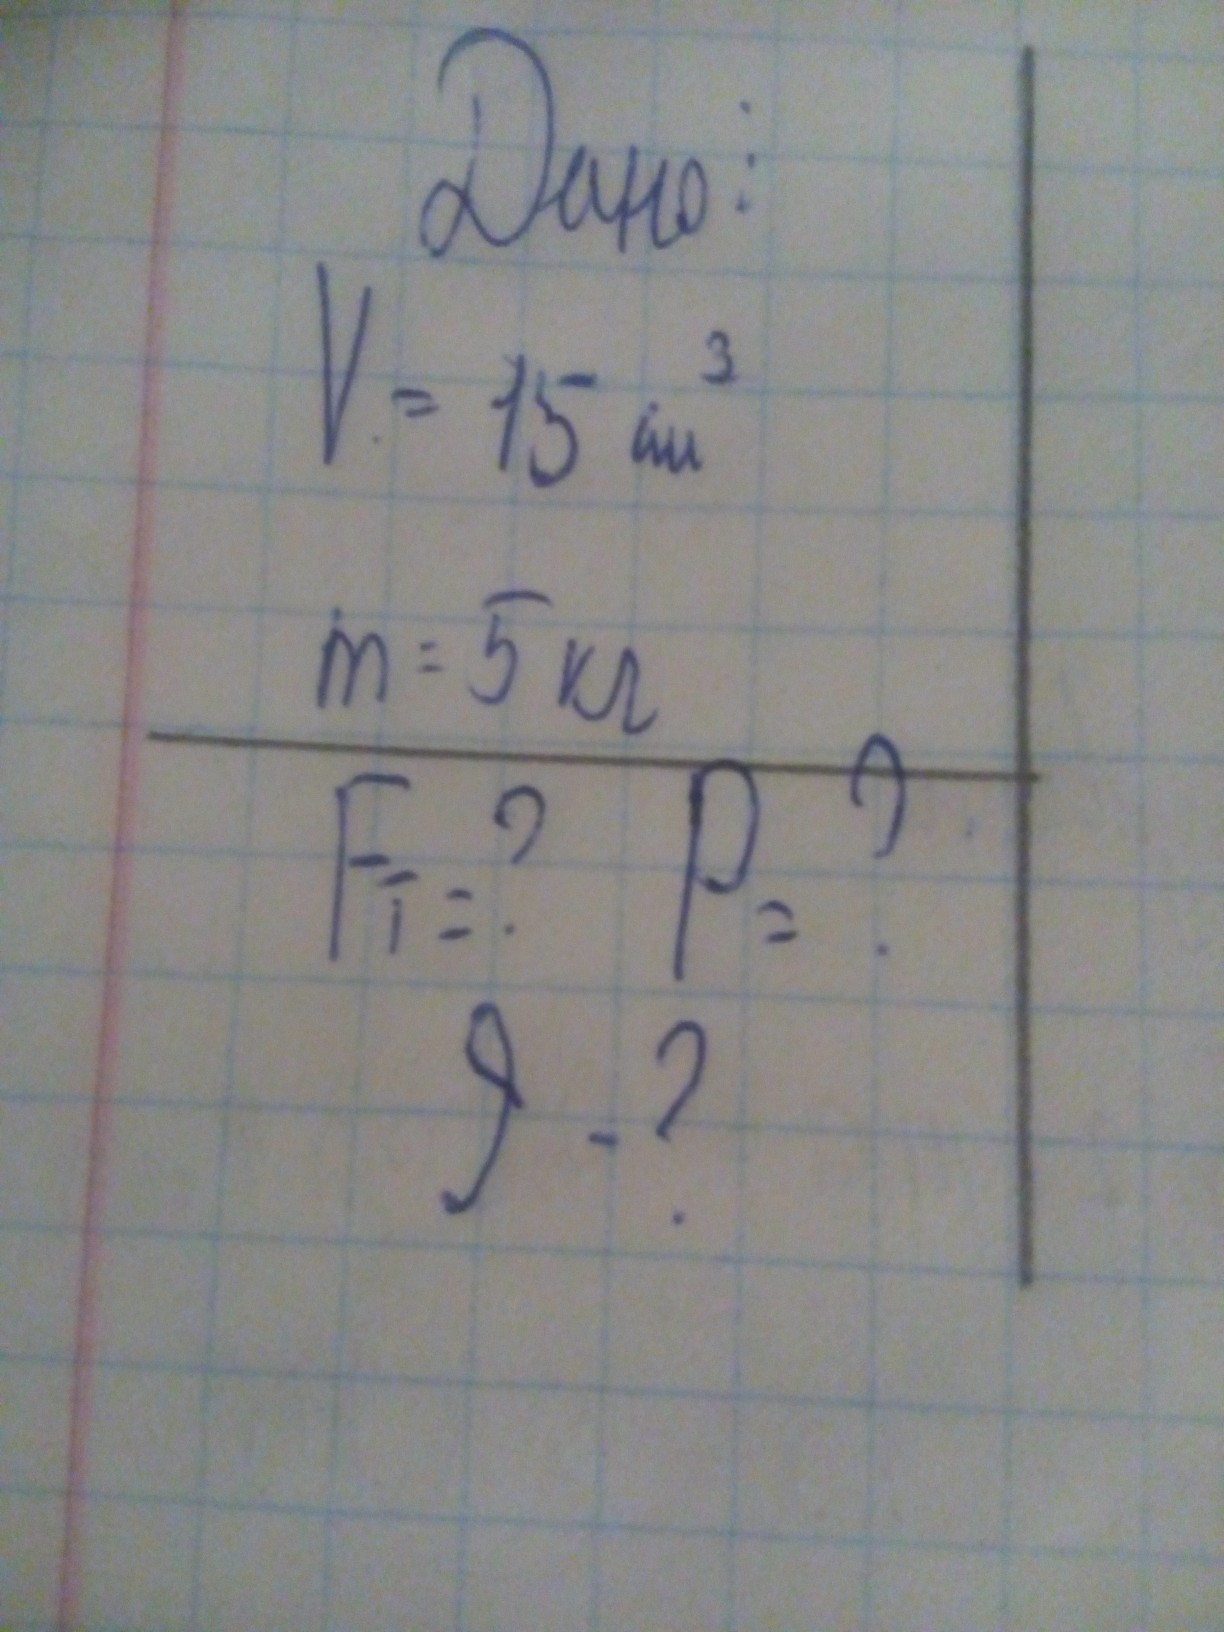 Дано:
V = 15 см³
m = 5 кг
Fт = ? P = ?
ρ - ?